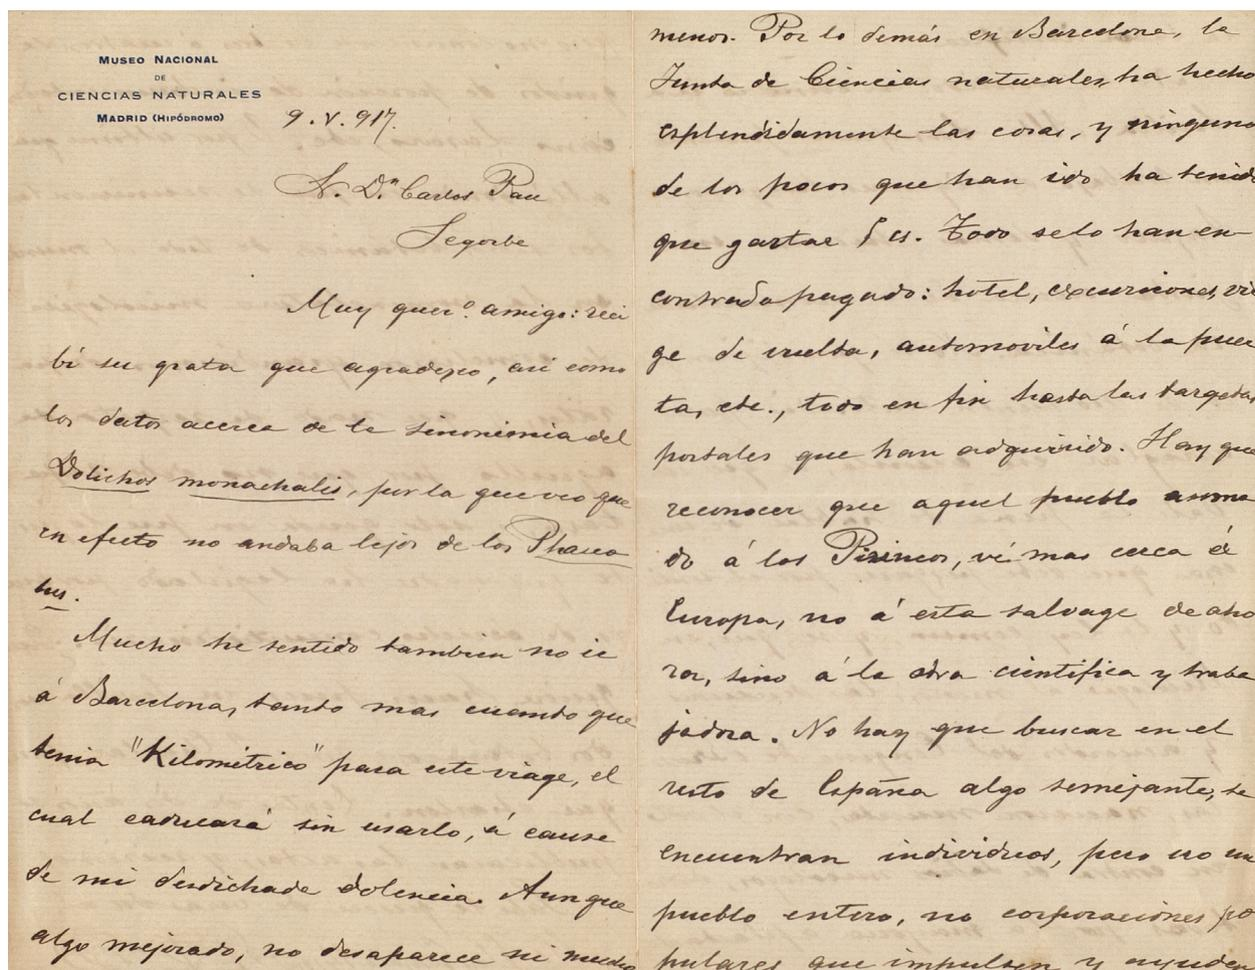 MUSEO NACIONAL
DE
CIENCIAS NATURALES
MADRID (HIPÓDROMO)
9. V. 917.
Dn Carlos Pau
Segorbe
Muy quer.º amigo: reci
bí su grata que agradezco, asi como
los datos acerca de la sinonimia del
Dolichos monachalis, por la que veo que
en efecto no andaba lejos de los Phaseo
lus.
Mucho he sentido tambien no ir
á Barcelona, tanto mas cuando que
tenia "Kilométrico" para este viage, el
cual caducará sin usarlo, á causa
de mi desdichada dolencia. Aunque
algo mejorado, no desaparece ni mucho
menos. Por lo demás en Barcelona, la
Junta de Ciencias naturales, ha hecho
esplendidamente las cosas, y ninguno
de los pocos que han ido ha tenido
que gastar 5 cs. Todo se lo han en-
contrado pagado: hotel, excursiones, via
ge de vuelta, automoviles á la puer
ta, etc., todo en fin hasta las targetas
postales que han adquirido. Hay que
reconocer que aquel pueblo asoma
do á los Pirineos, vé mas cerca á
Europa, no á esta salvage de aho
ra, sino á la otra cientifica y traba
jadora. No hay que buscar en el
resto de España algo semejante, se
encuentran individuos, pero no un
pueblo entero, no corporaciones po
pulares que impulsen y ayuden